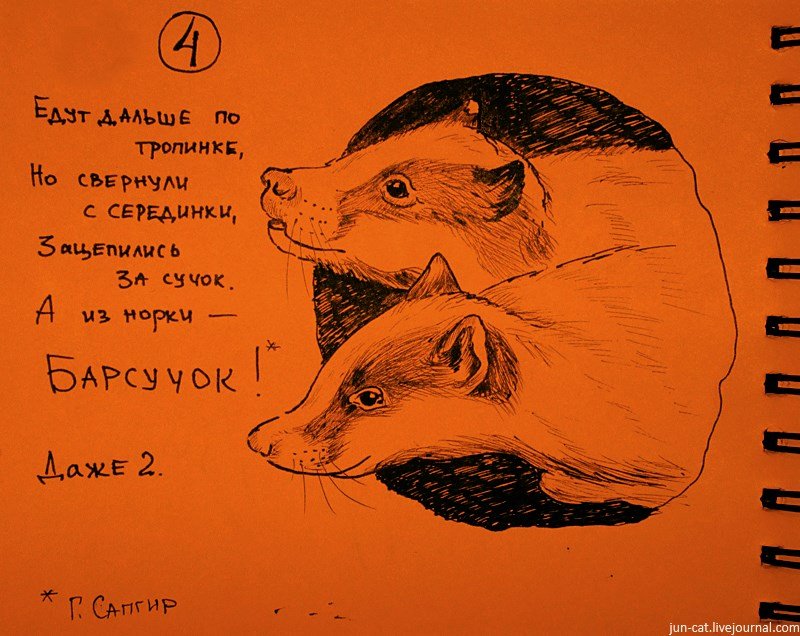 4
Едут дальше по
тропинке,
Но свернули
с серединки,
Зацепились
за сучок.
А из норки —
Барсучок!*
Даже 2.
* Г. Сапгир
jun-cat.livejournal.com